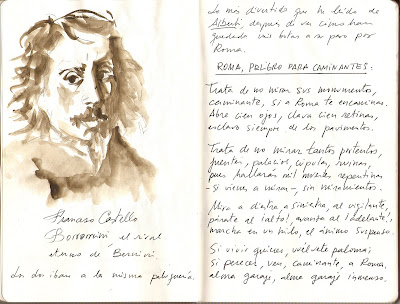 Francesco Castello
Borromini, el rival
eterno de Bernini.
Los dos iban a la misma peluquería.
Lo más divertido que he leído de
Alberti, después de ver cómo han
quedado mis botas a su paso por
Roma.
ROMA, PELIGRO PARA CAMINANTES:
Trata de no mirar sus monumentos,
caminante, si a Roma te encaminas.
Abre cien ojos, clava cien retinas,
esclavo siempre de los pavimentos.
Trata de no mirar tantos portentos,
fuentes, palacios, cúpulas, ruinas,
pues hallarás mil muertes repentinas
-si vienes a mirar-, sin miramientos.
Mira a diestra, a siniestra, al vigilante,
párate al ¡alto!, avanza al ¡adelante!,
marcha en un hilo, el ánimo suspenso.
Si vivir quieres, vuélvete paloma;
si perecer, ven, caminante, a Roma,
alma garaje, alma garaje inmenso.